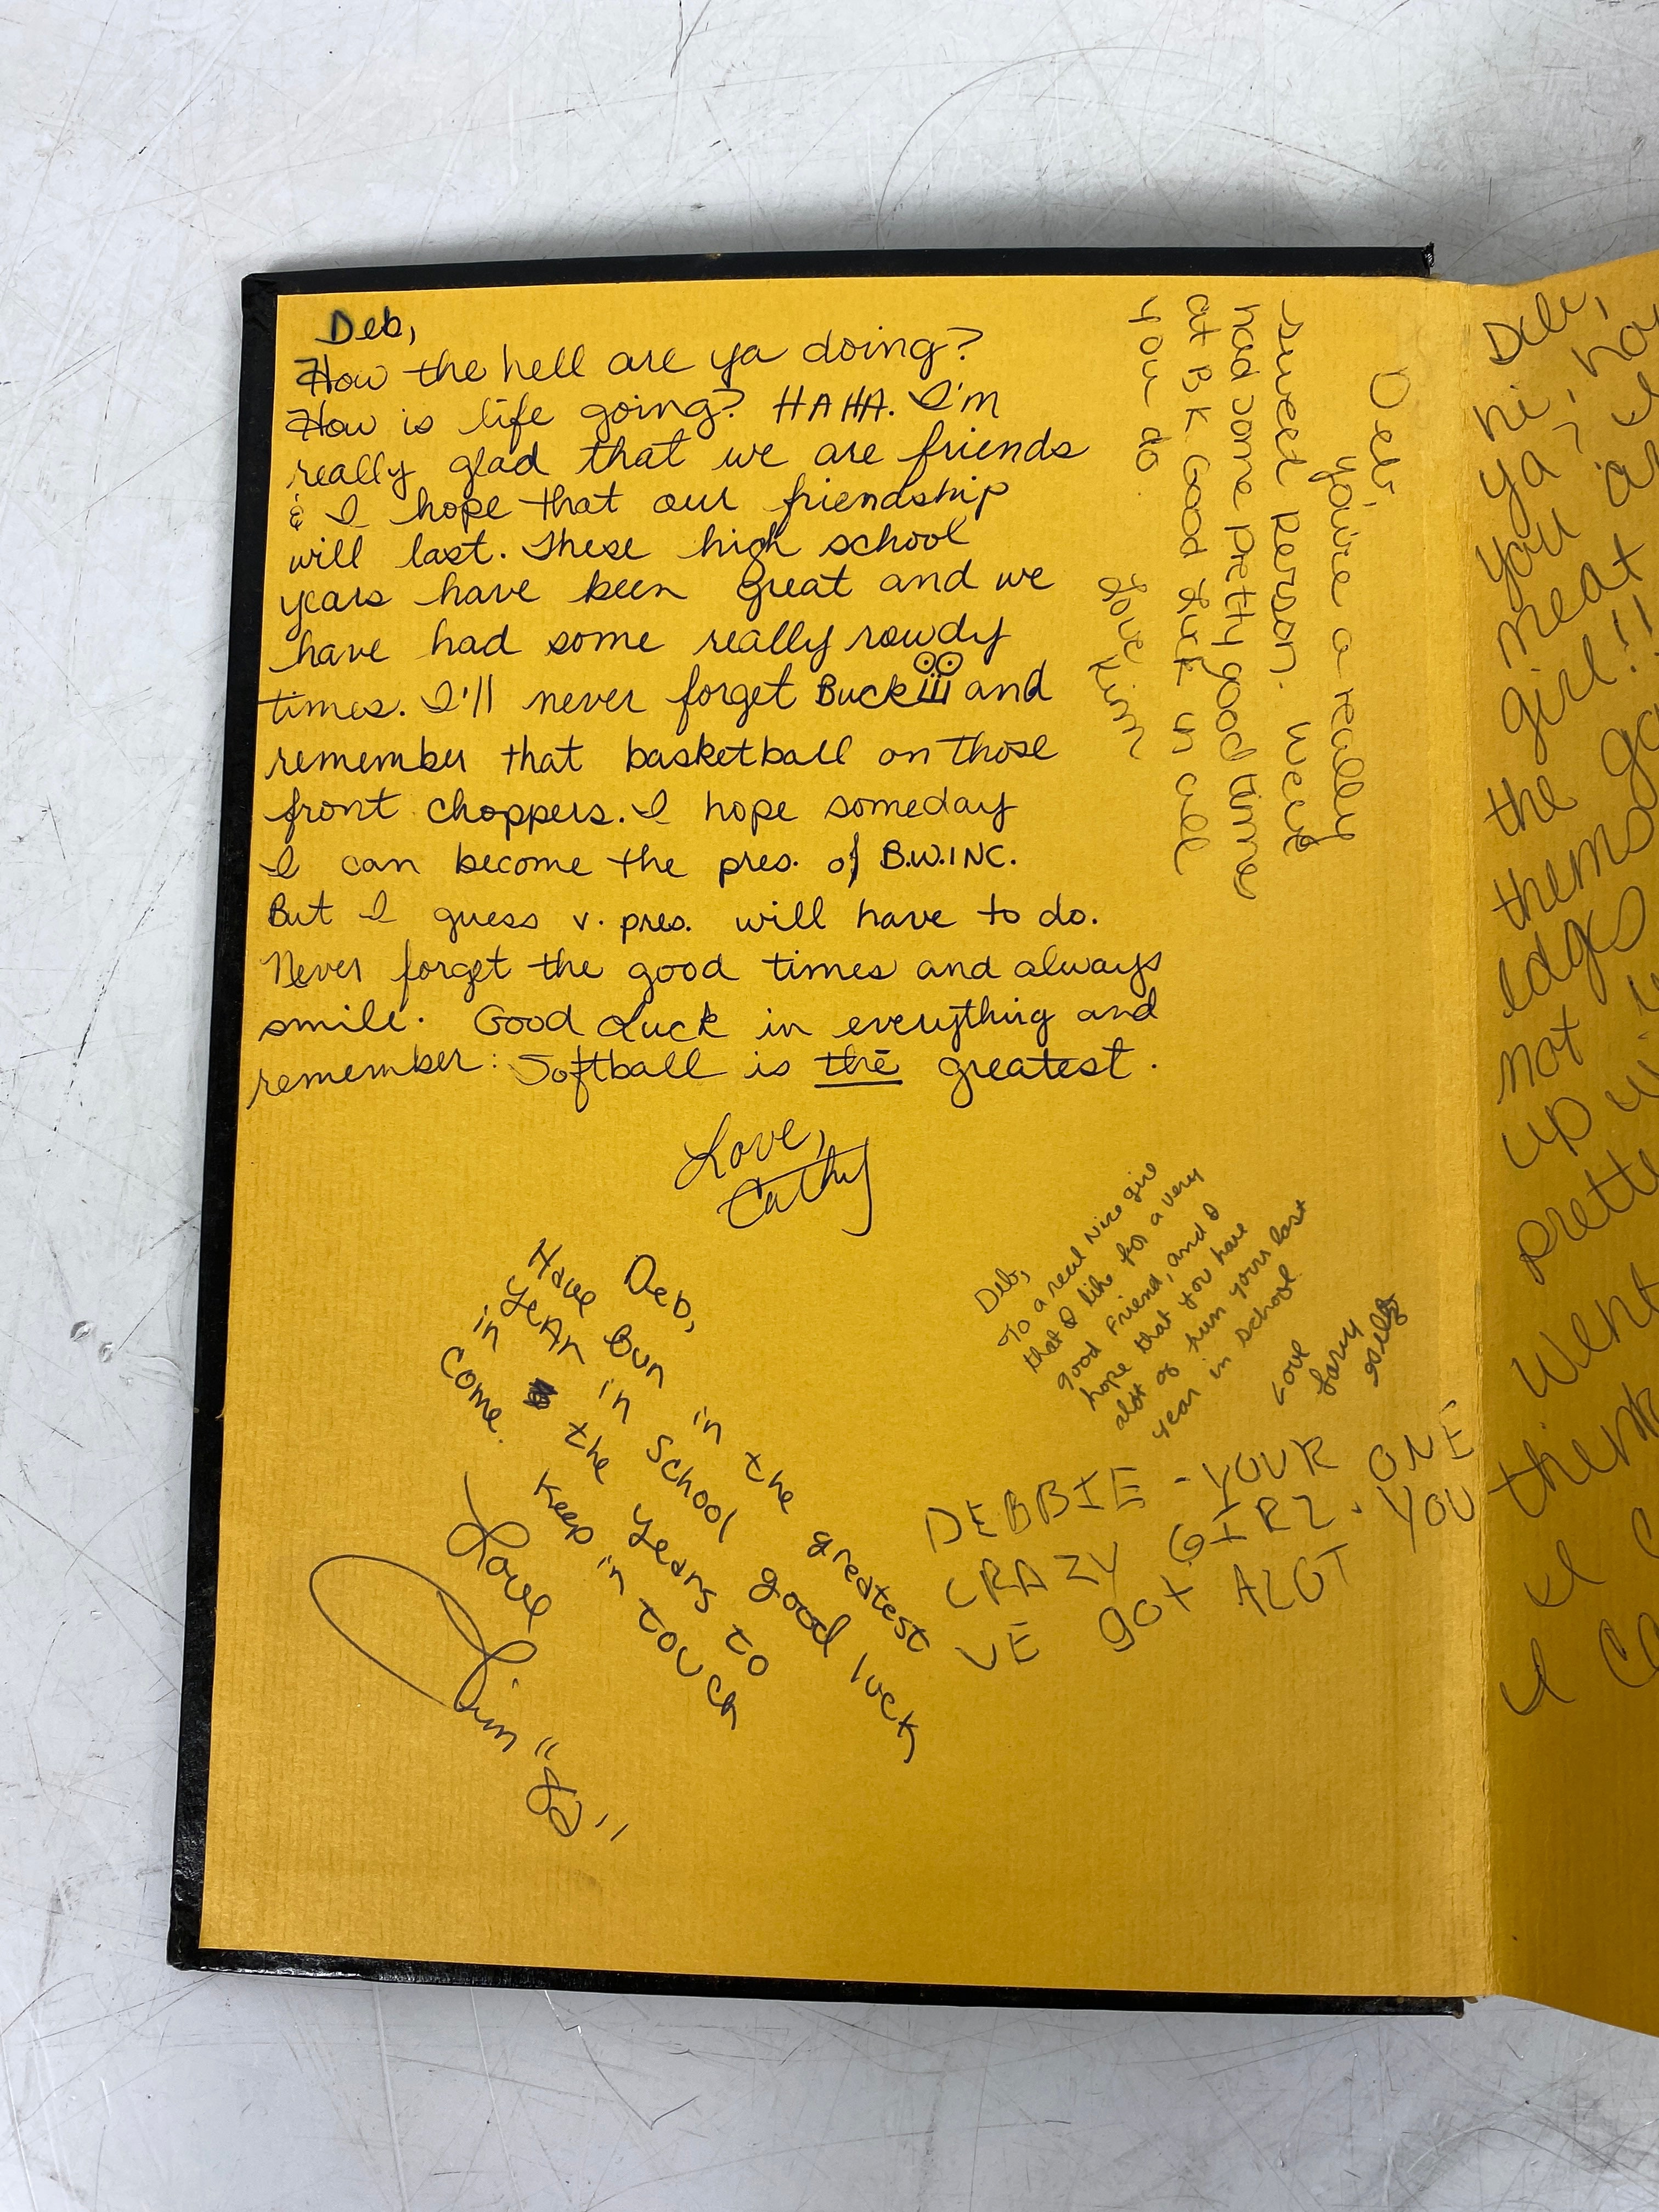 Deb,
How the hell are ya doing?
How is life going? HAHA. I'm
really glad that we are friends
& I hope that our friendship
will last. These high school
years have been great and we
have had some really rowdy
times. I'll never forget Buck and
remember that basketball on those
front choppers. I hope someday
I can become the pres. of B.W.INC.
But I guess v. pres. will have to do.
Never forget the good times and always
smile. Good Luck in everything and
remember: Softball is the greatest.
Love,
Cathy
Deb,
you're a really
sweet person. We've
had some pretty good time
at BK Good Luck in all
you do.
Love Kim
Deb,
To a real Nice girl
that I like for a very
good Friend, and I
hope that you have
alot of fun yours last
year in school
Love
Larry
Deb,
Have Bun in the greatest
year in School good luck
in the years to
come. Keep in touch
Love
Jim
DEBBIE - YOUR ONE
CRAZY GIRL. YOU
VE GOT ALOT
Deb,
hi,
ya?
you
neat
girl!!
the
edges
not
up
Went
think
I
I